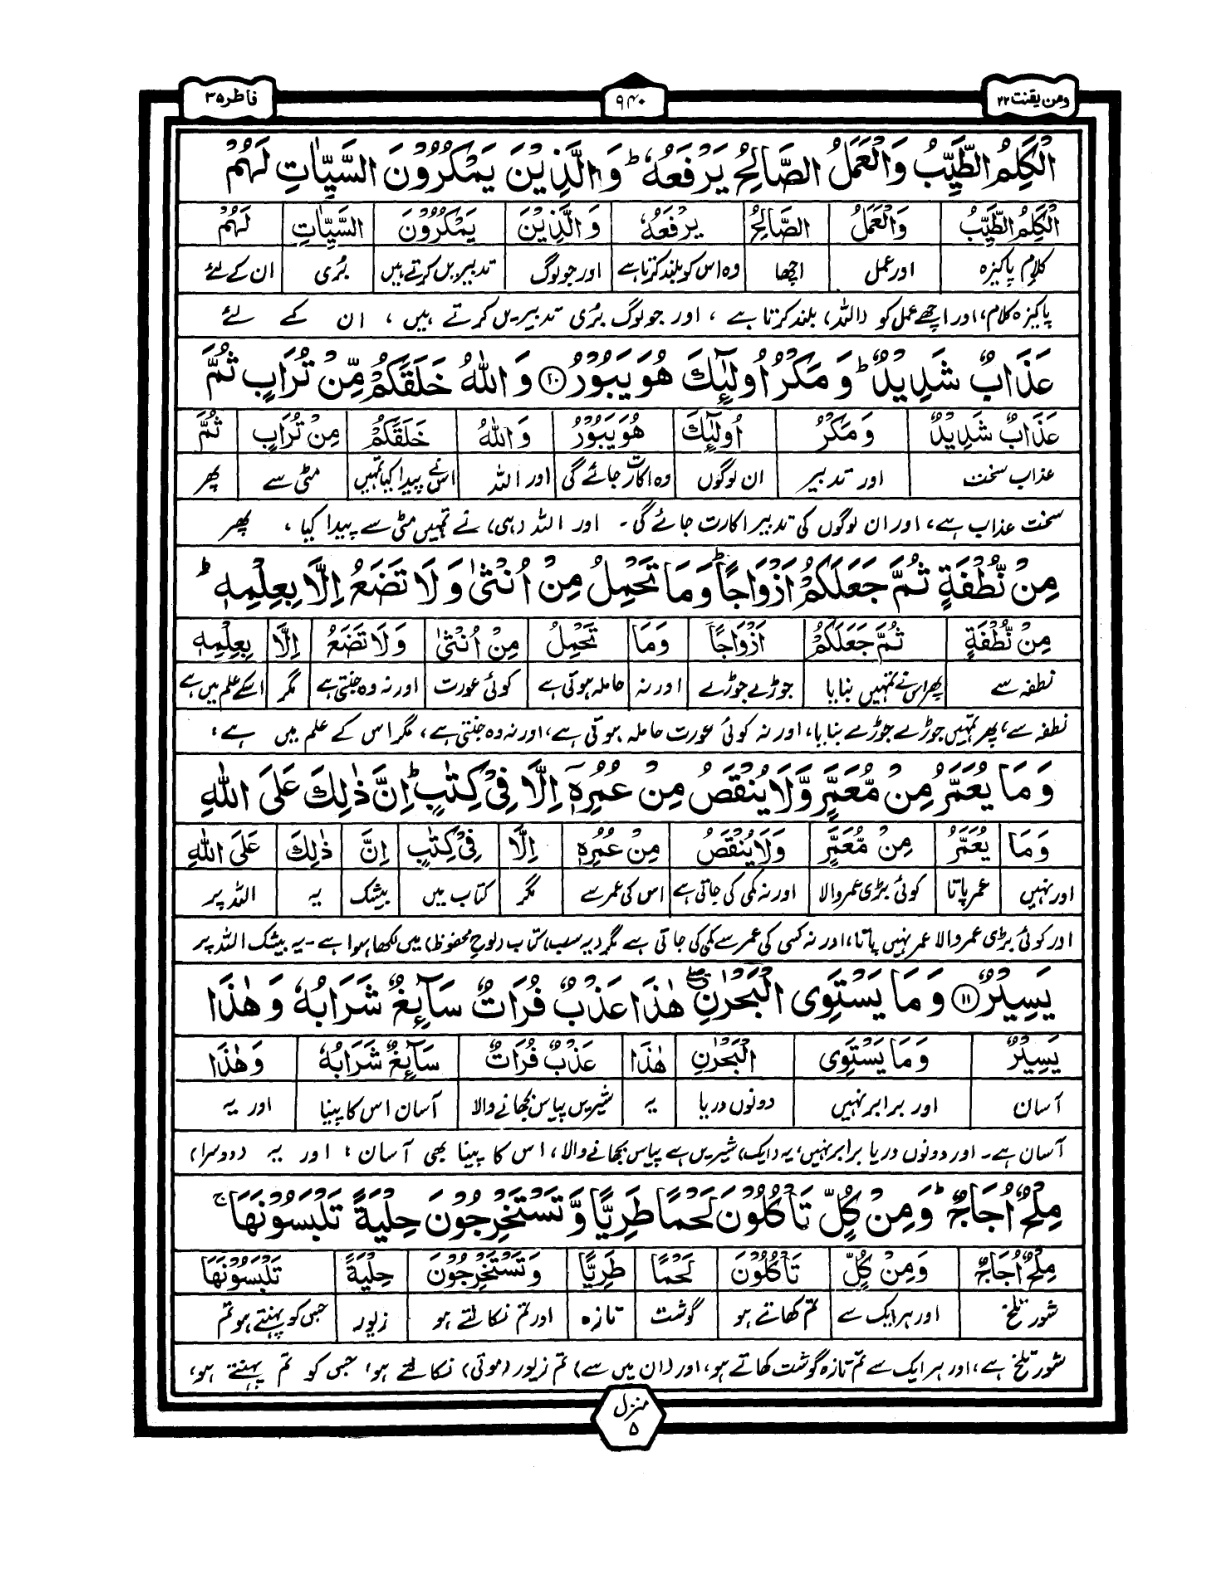 ومن یقنت ۲۲
۹۴۰
فاطر ۳۵
الْكَلِمُ الطَّيِّبُ وَالْعَمَلُ الصَّالِحُ يَرْفَعُهٗ ؕ وَالَّذِيْنَ يَمْكُرُوْنَ السَّيِّاٰتِ لَهُمْ
الْكَلِمُ الطَّيِّبُ وَالْعَمَلُ الصَّالِحُ يَرْفَعُهٗ وَالَّذِيْنَ يَمْكُرُوْنَ السَّيِّاٰتِ لَهُمْ
کلام پاکیزہ اور عمل اچھا وہ اس کو بلند کرتا ہے اور جو لوگ تدبیریں کرتے ہیں بُری ان کے لئے
پاکیزہ کلام، اور اچھے عمل کو (اللہ) بلند کرتا ہے ، اور جو لوگ بُری تدبیریں کرتے ہیں ، ان کے لئے
عَذَابٌ شَدِيْدٌ ؕ وَ مَكْرُ اُولٰٓئِكَ هُوَ يَبُوْرُ ۝۱۰ وَ اللّٰهُ خَلَقَكُمْ مِّنْ تُرَابٍ ثُمَّ
عَذَابٌ شَدِيْدٌ وَ مَكْرُ اُولٰٓئِكَ هُوَ يَبُوْرُ وَ اللّٰهُ خَلَقَكُمْ مِنْ تُرَابٍ ثُمَّ
عذاب سخت اور تدبیر ان لوگوں وہ اکارت جائے گی اور اللہ اس نے پیدا کیا تمہیں مٹی سے پھر
سخت عذاب ہے، اور ان لوگوں کی تدبیر اکارت جائے گی ۔ اور اللہ (ہی) نے تمہیں مٹی سے پیدا کیا ، پھر
مِنْ نُّطْفَةٍ ثُمَّ جَعَلَكُمْ اَزْوَاجًا ؕ وَمَا تَحْمِلُ مِنْ اُنْثٰى وَ لَا تَضَعُ اِلَّا بِعِلْمِهٖ ؕ
مِنْ نُّطْفَةٍ ثُمَّ جَعَلَكُمْ اَزْوَاجًا وَمَا تَحْمِلُ مِنْ اُنْثٰى وَ لَا تَضَعُ اِلَّا بِعِلْمِهٖ
نطفہ سے پھر اس نے تمہیں بنایا جوڑے جوڑے اور نہ حاملہ ہوتی ہے کوئی عورت اور نہ وہ جنتی ہے مگر اسکے علم میں ہے
نطفہ سے، پھر تمہیں جوڑے جوڑے بنایا، اور نہ کوئی عورت حاملہ ہوتی ہے، اور نہ وہ جنتی ہے ، مگر اس کے علم میں ہے ؛
وَ مَا يُعَمَّرُ مِنْ مُّعَمَّرٍ وَّلَا يُنْقَصُ مِنْ عُمُرِهٖٓ اِلَّا فِيْ كِتٰبٍ ؕ اِنَّ ذٰلِكَ عَلَى اللّٰهِ
وَ مَا يُعَمَّرُ مِنْ مُّعَمَّرٍ وَلَا يُنْقَصُ مِنْ عُمُرِهٖ اِلَّا فِيْ كِتٰبٍ اِنَّ ذٰلِكَ عَلَى اللّٰهِ
اور نہیں عمر پاتا کوئی بڑی عمر والا اور نہ کمی کی جاتی ہے اس کی عمر سے مگر کتاب میں بیشک یہ اللہ پر
اور کوئی بڑی عمر والا عمر نہیں پاتا، اور نہ کسی کی عمر سے کمی کی جاتی ہے مگر (یہ سب) کتاب (لوح محفوظ) میں لکھا ہوا ہے ۔ یہ بیشک اللہ پر
يَسِيْرٌ ۝۱۱ وَ مَا يَسْتَوِى الْبَحْرٰنِ ۖ هٰذَا عَذْبٌ فُرَاتٌ سَآئِغٌ شَرَابُهٗ وَ هٰذَا
يَسِيْرٌ وَ مَا يَسْتَوِى الْبَحْرٰنِ هٰذَا عَذْبٌ فُرَاتٌ سَآئِغٌ شَرَابُهٗ وَ هٰذَا
آسان اور برابر نہیں دونوں دریا یہ شیریں پیاس بجھانے والا آسان اس کا پینا اور یہ
آسان ہے۔ اور دونوں دریا برابر نہیں، یہ (ایک) شیریں ہے پیاس بجھانے والا، اس کا پینا بھی آسان ؛ اور یہ (دوسرا)
مِلْحٌ اُجَاجٌ ؕ وَ مِنْ كُلٍّ تَاْكُلُوْنَ لَحْمًا طَرِيًّا وَّ تَسْتَخْرِجُوْنَ حِلْيَةً تَلْبَسُوْنَهَا ۚ
مِلْحٌ اُجَاجٌ وَ مِنْ كُلٍّ تَاْكُلُوْنَ لَحْمًا طَرِيًّا وَ تَسْتَخْرِجُوْنَ حِلْيَةً تَلْبَسُوْنَهَا
شور تلخ اور ہر ایک سے تم کھاتے ہو گوشت تازہ اور تم نکالتے ہو زیور جس کو پہنتے ہو تم
شور تلخ ہے، اور ہر ایک سے تم تازہ گوشت کھاتے ہو، اور (ان میں سے) تم زیور (موتی) نکالتے ہو، جس کو تم پہنتے ہو،
منزل ۵